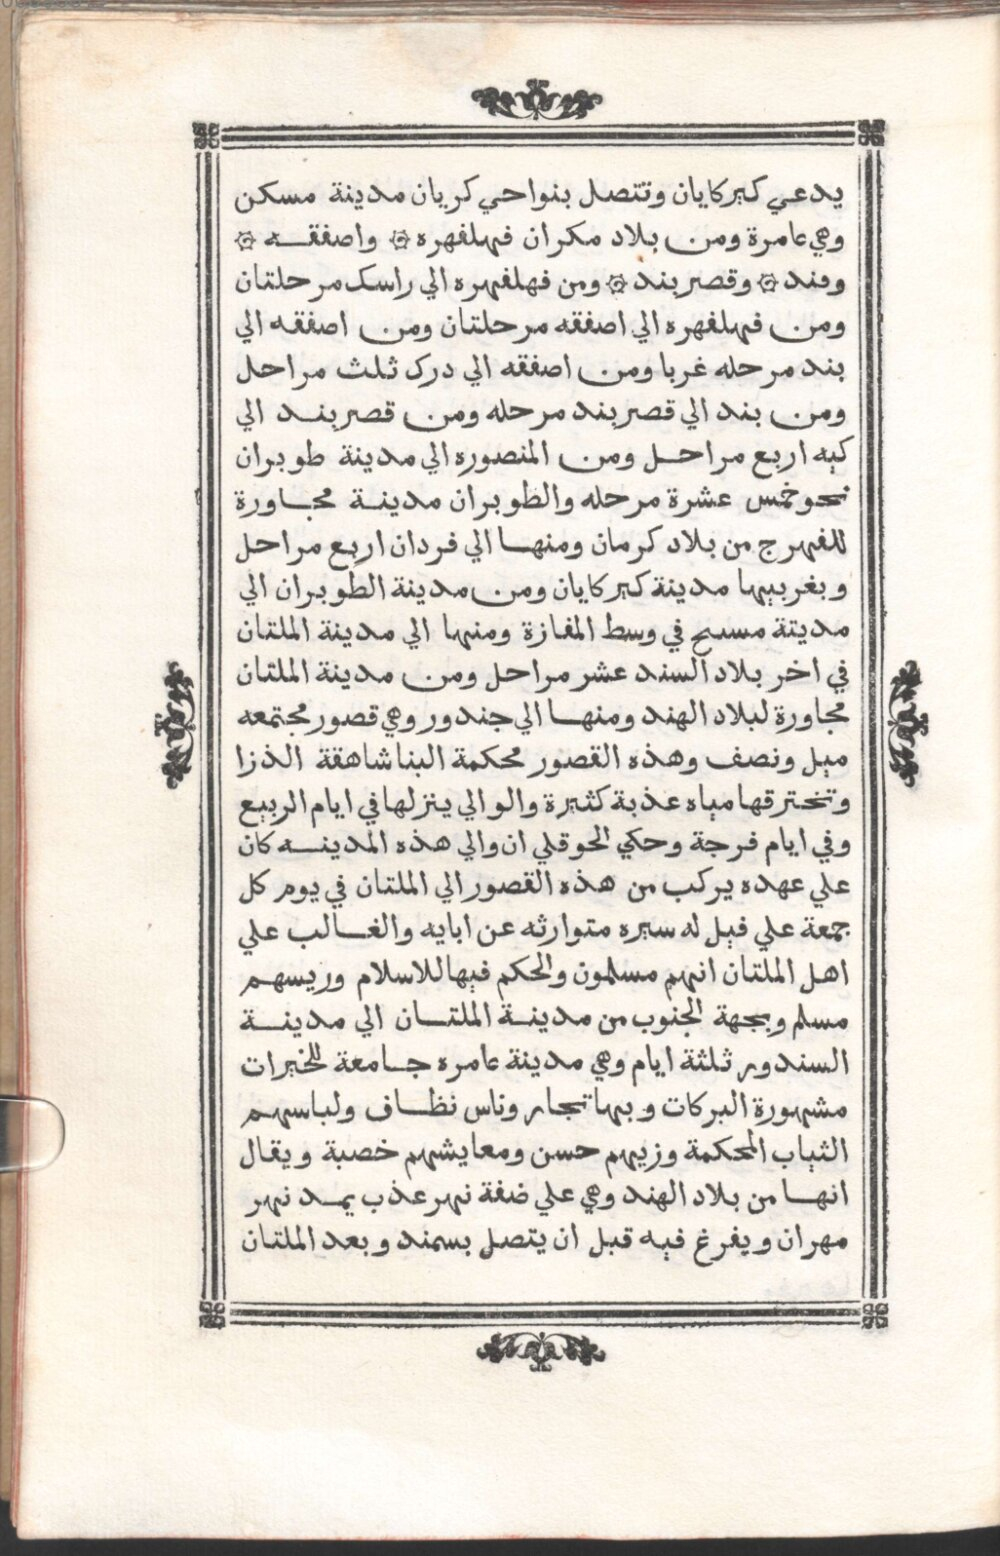 يدعي كبركايان وتتصل بنواحي كريان مدينة مسكن
وهي عامرة ومن بلاد مكران فهلفهره ۞ واصفقه ۞
وبند ۞ وقصر بند ۞ ومن فهلفهره الي راسك مرحلتان
ومن فهلفهره الي اصفقه مرحلتان ومن اصفقه الي
بند مرحله غربا ومن اصفقه الي درك ثلث مراحل
ومن بند الي قصر بند مرحله ومن قصر بند الي
كيه اربع مراحل ومن المنصوره الي مدينة طوبران
نحو خمس عشرة مرحله والطوبران مدينة مجاورة
للفهرج من بلاد كرمان ومنها الي فردان اربع مراحل
وبغربيها مدينة كبركايان ومن مدينة الطوبران الي
مديتة مسيح في وسط المفازة ومنها الي مدينة الملتان
في اخر بلاد السند عشر مراحل ومن مدينة الملتان
مجاورة لبلاد الهند ومنها الي جندور وهي قصور مجتمعه
ميل ونصف وهذه القصور محكمة البنا شاهقة الذزا
وتخترقها مياه عذبة كثيرة والوالي ينزلها في ايام الربيع
وفي ايام فرجة وحكي الحوقلي ان والي هذه المدينه كان
علي عهده يركب من هذه القصور الي الملتان في يوم كل
جمعة علي فيل له سيره متوارثه عن ابايه والغالب علي
اهل الملتان انهم مسلمون والحكم فيها للاسلام وريسهم
مسلم وبجهة الجنوب من مدينة الملتان الي مدينة
السندور ثلثة ايام وهي مدينة عامره جامعة للخيرات
مشهورة البركات وبها تجار وناس نظاف ولباسهم
الثياب المحكمة وزيهم حسن ومعايشهم خصبة ويقال
انها من بلاد الهند وهي علي ضفة نهر عذب يمد نهر
مهران ويفرغ فيه قبل ان يتصل بسمند وبعد الملتان